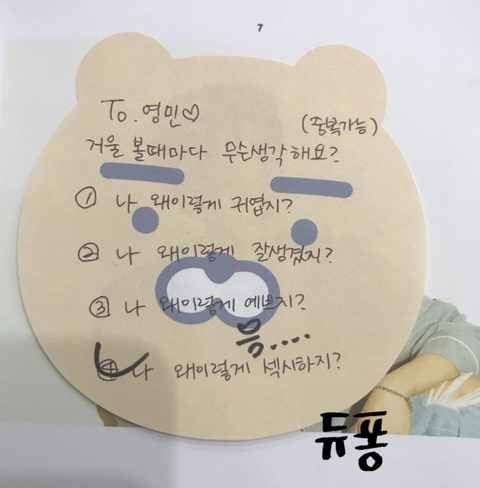 7
To. 영민♡
(중복가능)
거울 볼때마다 무슨생각해요?
① 나 왜이렇게 귀엽지?
② 나 왜이렇게 잘생겼지?
③ 나 왜이렇게 예쁘지?
음....
④ 나 왜이렇게 섹시하지?
듀퐁